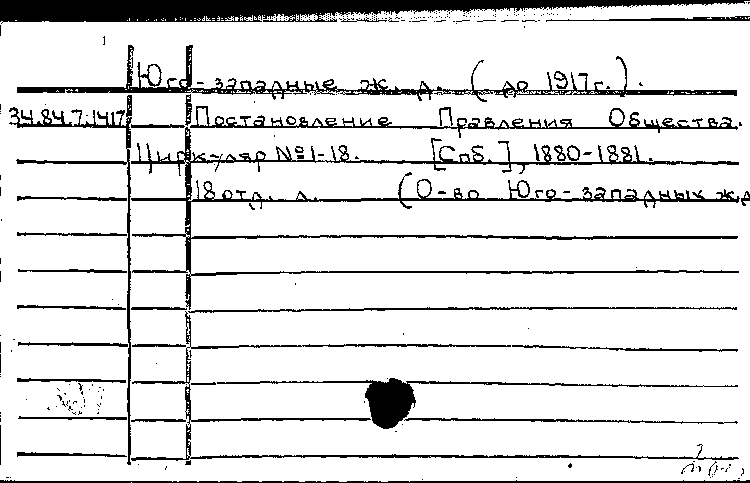 Юго-западные ж. д. (до 1917г.).
34.84.7.1417 Постановление Правления Общества.
Циркуляр №1-18. [Спб.], 1880-1881.
18 отд. л. (О-во Юго-западных ж.д